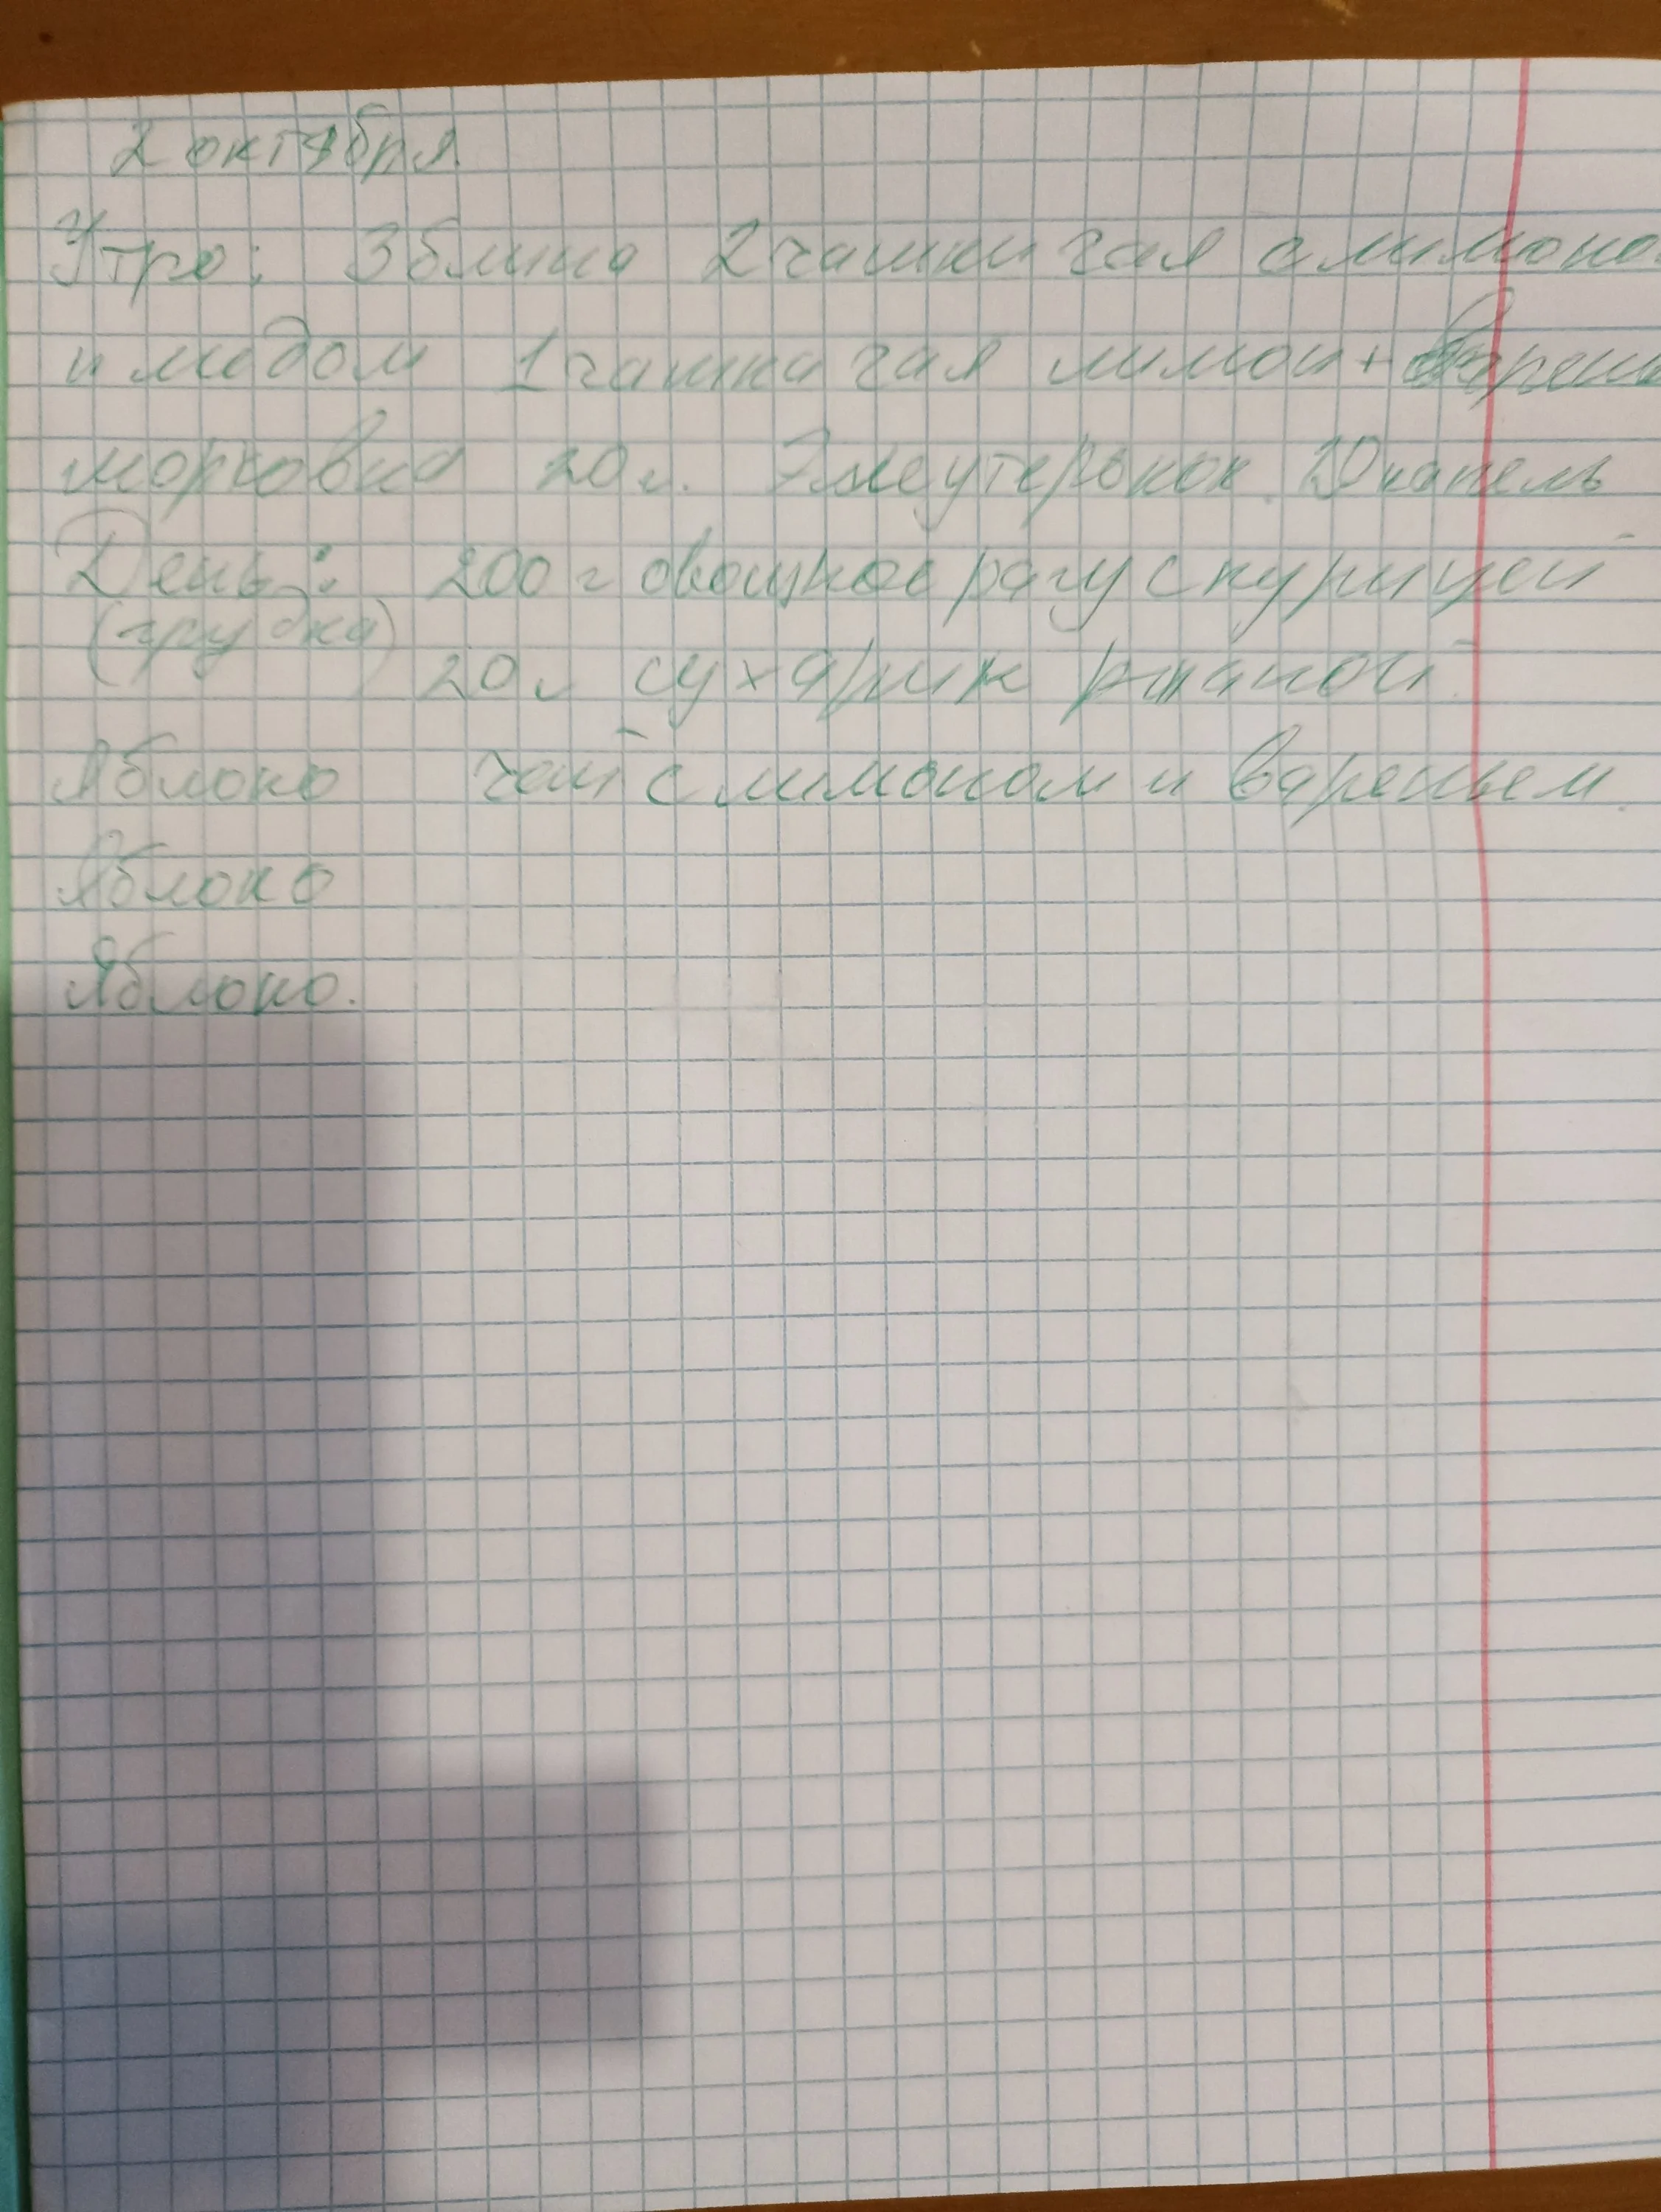 2 октября
Утро: 3 блина 2 чашки чая с лимоно
и медом 1 чашка чая лимон + варень
морковка 20 г. Элеутерокок 20 капель
День: 200 г овощное рагу с курицей
(грудка)
20 г сухарик ржаной
Яблоко чай с лимоном и вареньем.
Яблоко
Яблоко.